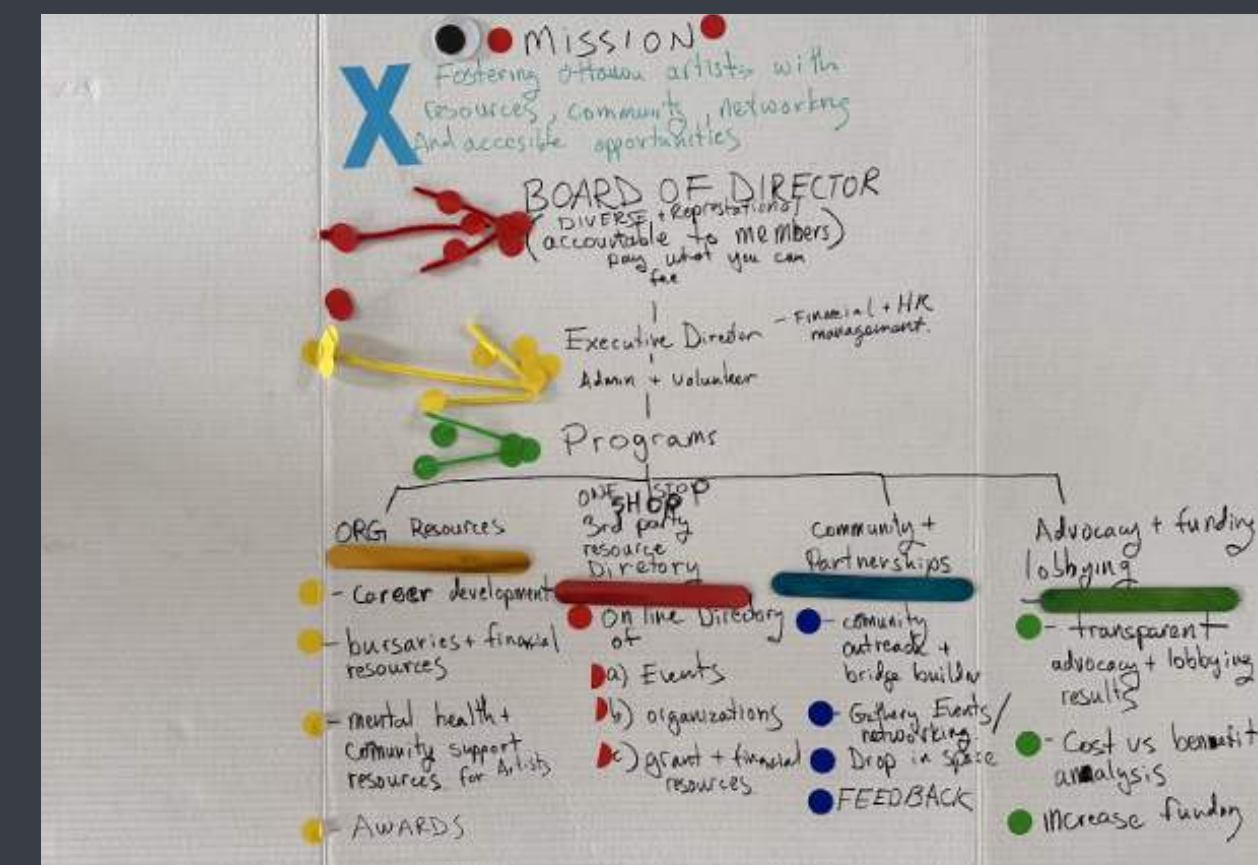 MISSION
Fostering Ottawa artists with
resources, community, networking
And accesible opportunities
BOARD OF DIRECTOR
DIVERSE +
(accountable to members)
pay what you can
fee
Executive Director
- Financial + HR
management.
Admin + volunteer
Programs
ORG Resources
- Career development
- bursaries + financial
resources
- mental health +
community support
resources for Artists
- AWARDS
ONE STOP
SHOP
3rd party
resource
Diretory
On line Directory
of
a) Events
b) organizations
c) grant + financial
resources
Community +
Partnerships
- comunity
outreach +
bridge builder
- Events/
networking
Drop in space
FEEDBACK
Advocacy + funding
lobbying
- transparent
advocacy + lobbying
results
- Cost vs
analysis
increase funding